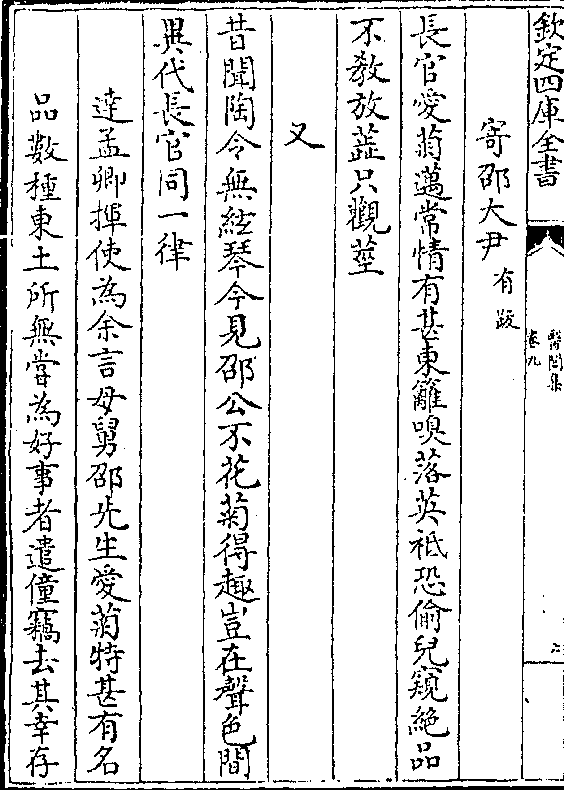 欽定四庫全書
醫閭集
卷九
六
寄邵大尹有跋
長官愛菊邁常情有甚東籬嗅落英祗恐偷兒窺絶品
不教放蕋只觀莖
又
昔聞陶令無絃琴今見邵公不花菊得趣豈在聲色間
異代長官同一律
逹孟卿揮使為余言母舅邵先生愛菊特甚有名
品數種東土所無嘗為好事者遣僮竊去其幸存